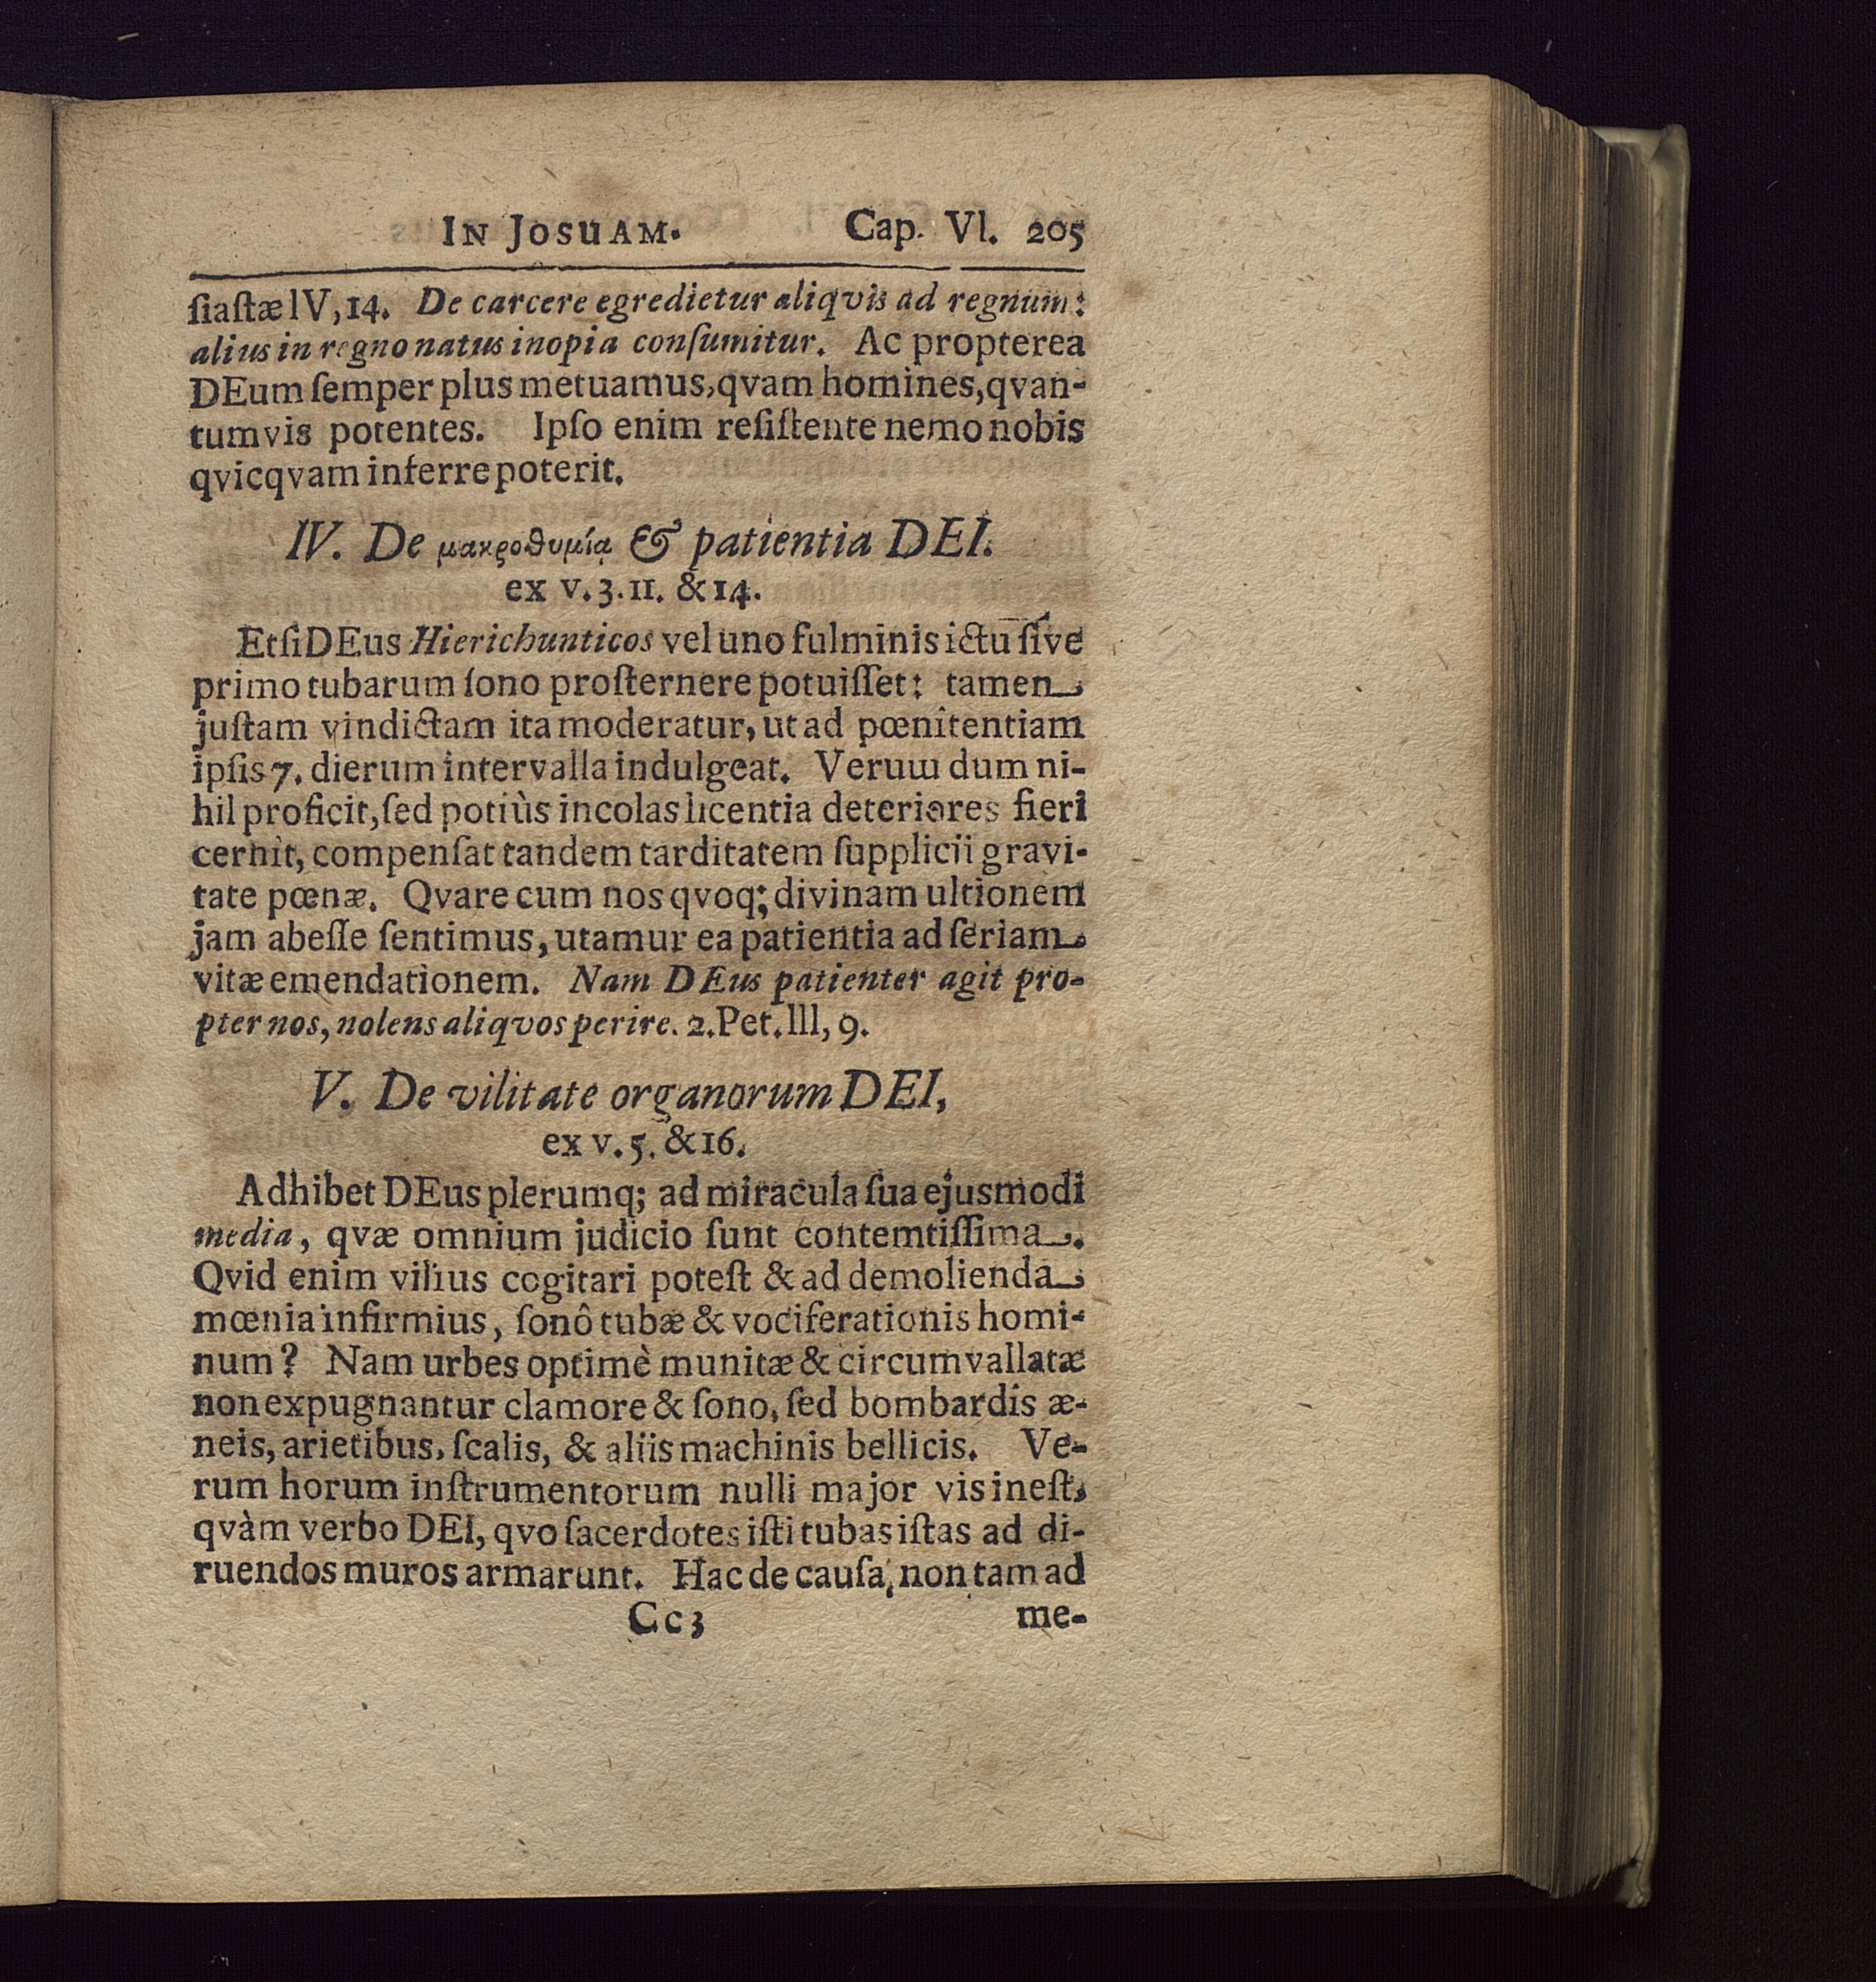 IN JOSUAM. Cap. Vl. 205
ſiaſtæ lV, 14. De carcere egredietur aliqvis ad regnum:
alius in regno natus inopia conſumitur. Ac propterea
DEum ſemper plus metuamus, qvam homines, qvan-
tumvis potentes. Ipſo enim reſiſtente nemo nobis
qvicqvam inferre poterit.
IV. De μακροθυμίᾳ & patientia DEI.
ex v. 3. 11. & 14.
Etſi DEus Hierichunticos vel uno fulminis ictu ſive
primo tubarum ſono proſternere potuiſſet: tamen
juſtam vindictam ita moderatur, ut ad pœnitentiam
ipſis 7. dierum intervalla indulgeat. Verum dum ni-
hil proficit, ſed potiùs incolas licentia deteriores fieri
cernit, compenſat tandem tarditatem ſupplicii gravi-
tate pœnæ. Qvare cum nos qvoq; divinam ultionem
jam abeſſe ſentimus, utamur ea patientia ad ſeriam
vitæ emendationem. Nam DEus patienter agit pro-
pter nos, nolens aliqvos perire. 2. Pet. lll, 9.
V. De vilitate organorum DEI,
ex v. 5. & 16.
Adhibet DEus plerumq; ad miracula ſua ejusmodi
media, qvæ omnium judicio ſunt contemtiſſima.
Qvid enim vilius cogitari poteſt & ad demolienda
mœnia infirmius, ſonô tubæ & vociferationis homi-
num? Nam urbes optimè munitæ & circumvallatæ
non expugnantur clamore & ſono, ſed bombardis æ-
neis, arietibus, ſcalis, & aliis machinis bellicis. Ve-
rum horum inſtrumentorum nulli major vis ineſt,
qvàm verbo DEI, qvo ſacerdotes iſti tubas iſtas ad di-
ruendos muros armarunt. Hac de cauſa, non tam ad
Cc3 me-